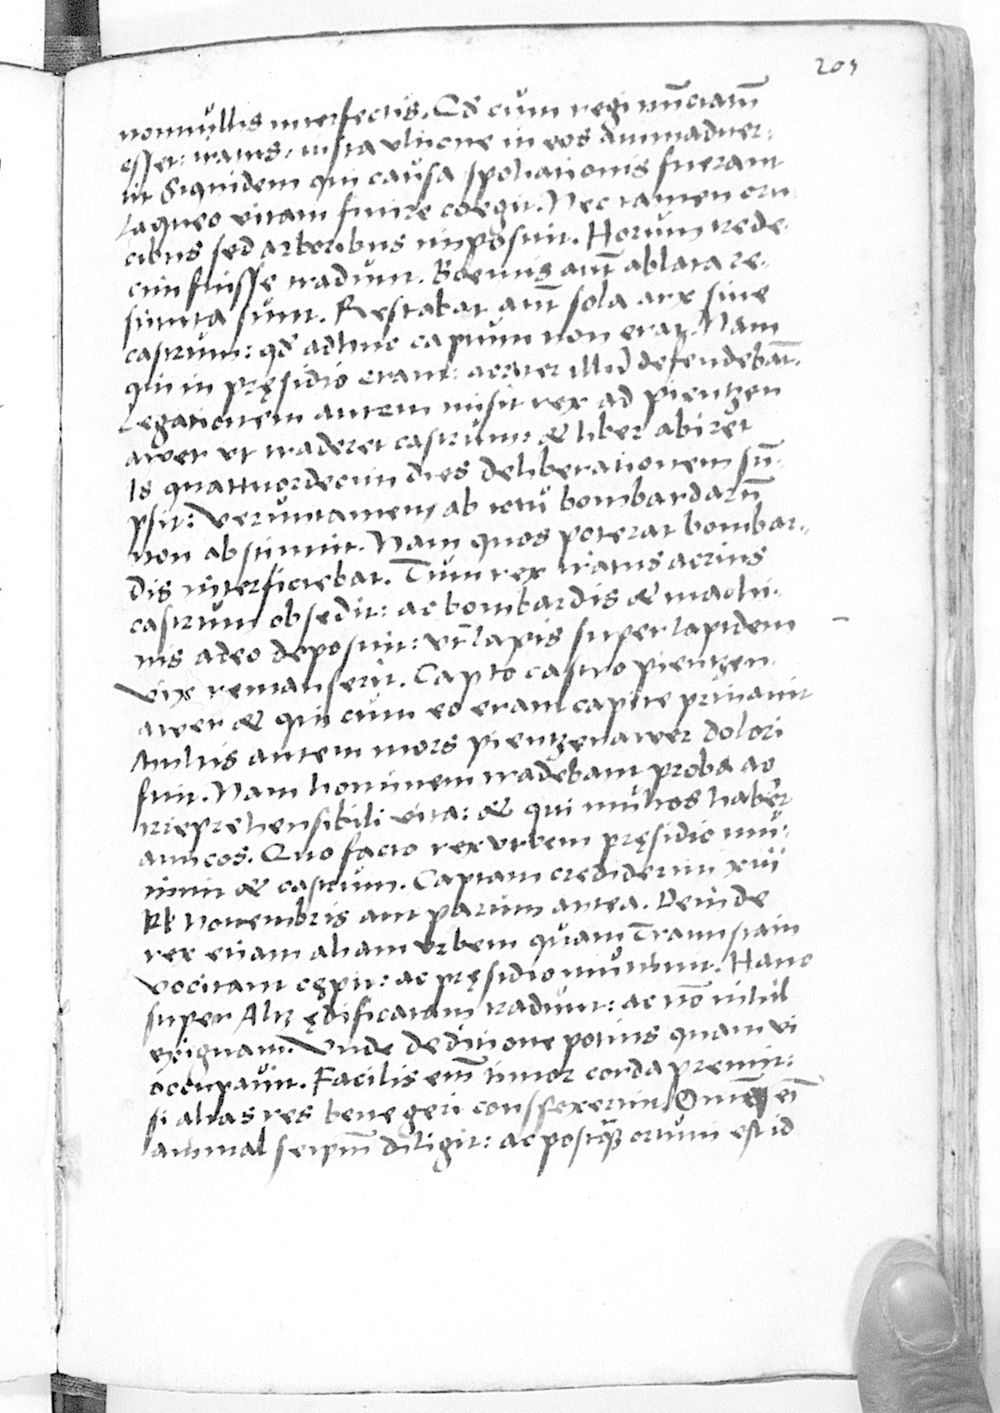 201
nonnullis interfectis. Qđ cum regi nūciatū
esset: iratus, iusta ultione in eos animaduer-
tit Siquidem qui causa spoliationis fuerant
laqueo vitam finire coegit. Nec tamen cru-
cibus sed arboribus imposuit. Horum trede-
cim fuisse tradunt. Boemis aut̄ ablata re-
stituta sunt. Restabat aut̄ sola arx siue
castrum: qđ adhuc captum non erat. Nam
qui in pręsidio erant: acriter illud defendebāt.
Legationem autem misit rex ad pientzen
awer vt traderet castrum & liber abiret
Is quattuordecim dies deliberationem sū-
psit: Veruntamen ab ictu bombardarū
non abstinuit. Nam quos poterat bombar-
dis interficiebat. Tum rex iratus acrius
castrum obsedit: ac bombardis & machi-
nis adeo deposuit: vt lapis super lapidem
vix remanserit. Capto castro pientzen-
awer & qui cum eo erant capite priuauit
Multis autem mors pientzenawer dolori
fuit. Nam hominem tradebant proba ac
irreprehensibili vita: & qui multos haber&
amicos. Quo facto rex vrbem pręsidio mu-
niuit & castrum. Captam crediderim xiiii
kł Nouembris aut parum antea. Deinde
rex etiam aliam vrbem quam Traunstain
vocitant cępit: ac pręsidio muniuit. Hanc
super Altz ędificatam tradunt: ac nō nihil
exiguam. Vnde deditione potius quam vi
occupauit. Facilis em̄ timor corda premit:
si alias res bene geri conspexerint. Omne em̄
animal seipm̄ diligit: ac postq̄ ortum est id